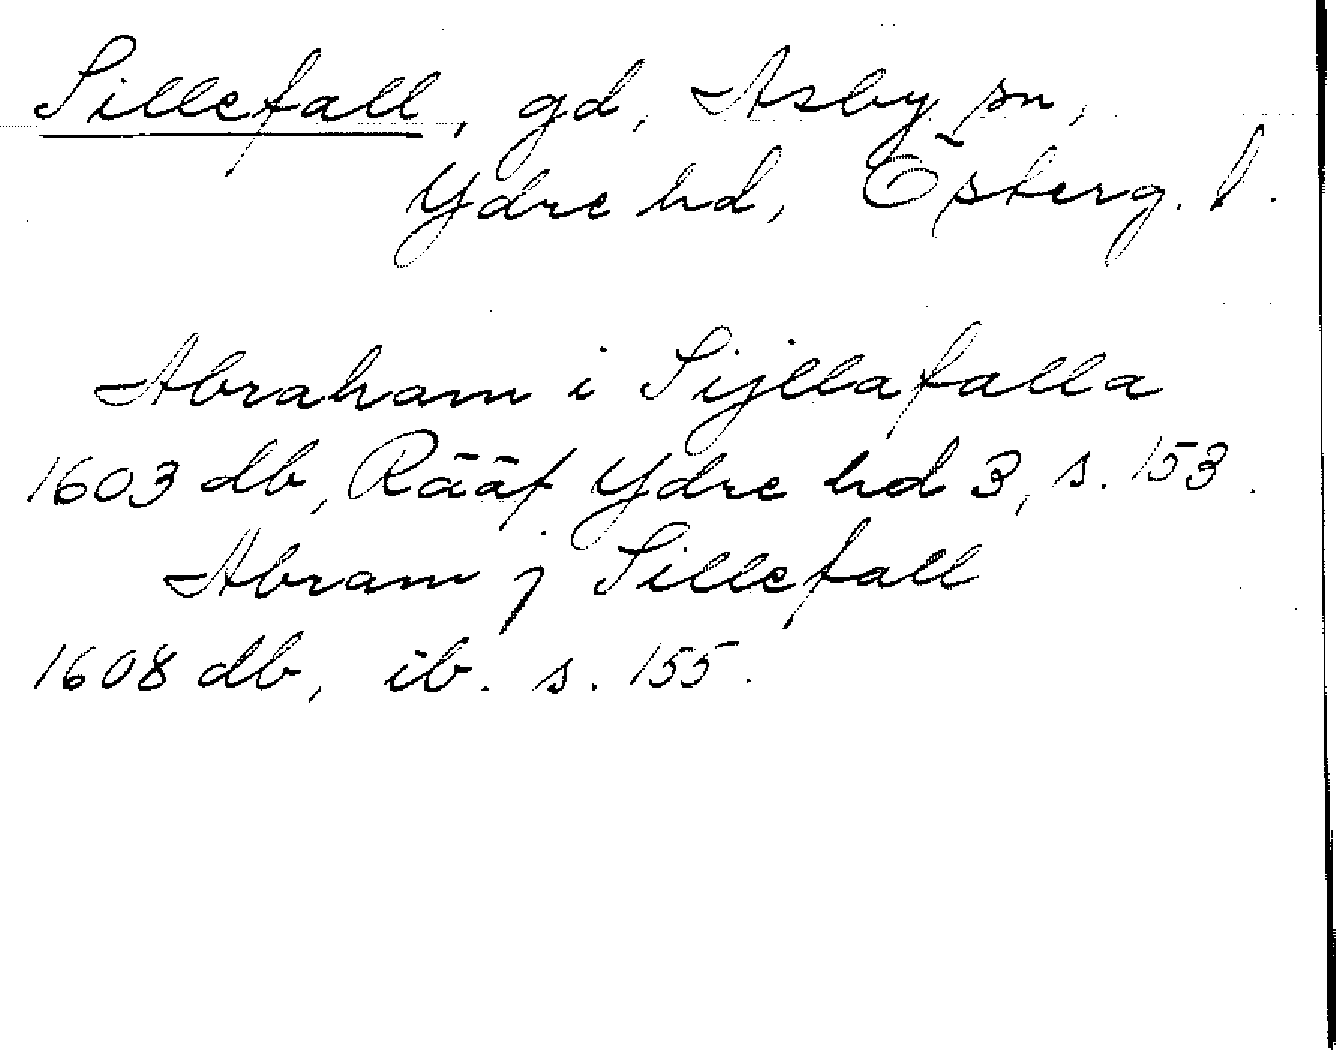 Sillefall, gd, Asby sn,
Ydre hd, Österg. l.
Abraham i Sijllafalla
1603 db, Rääf Ydre hd 3, s. 153.
Abram j Sillefall
1608 db, ib. s. 155.